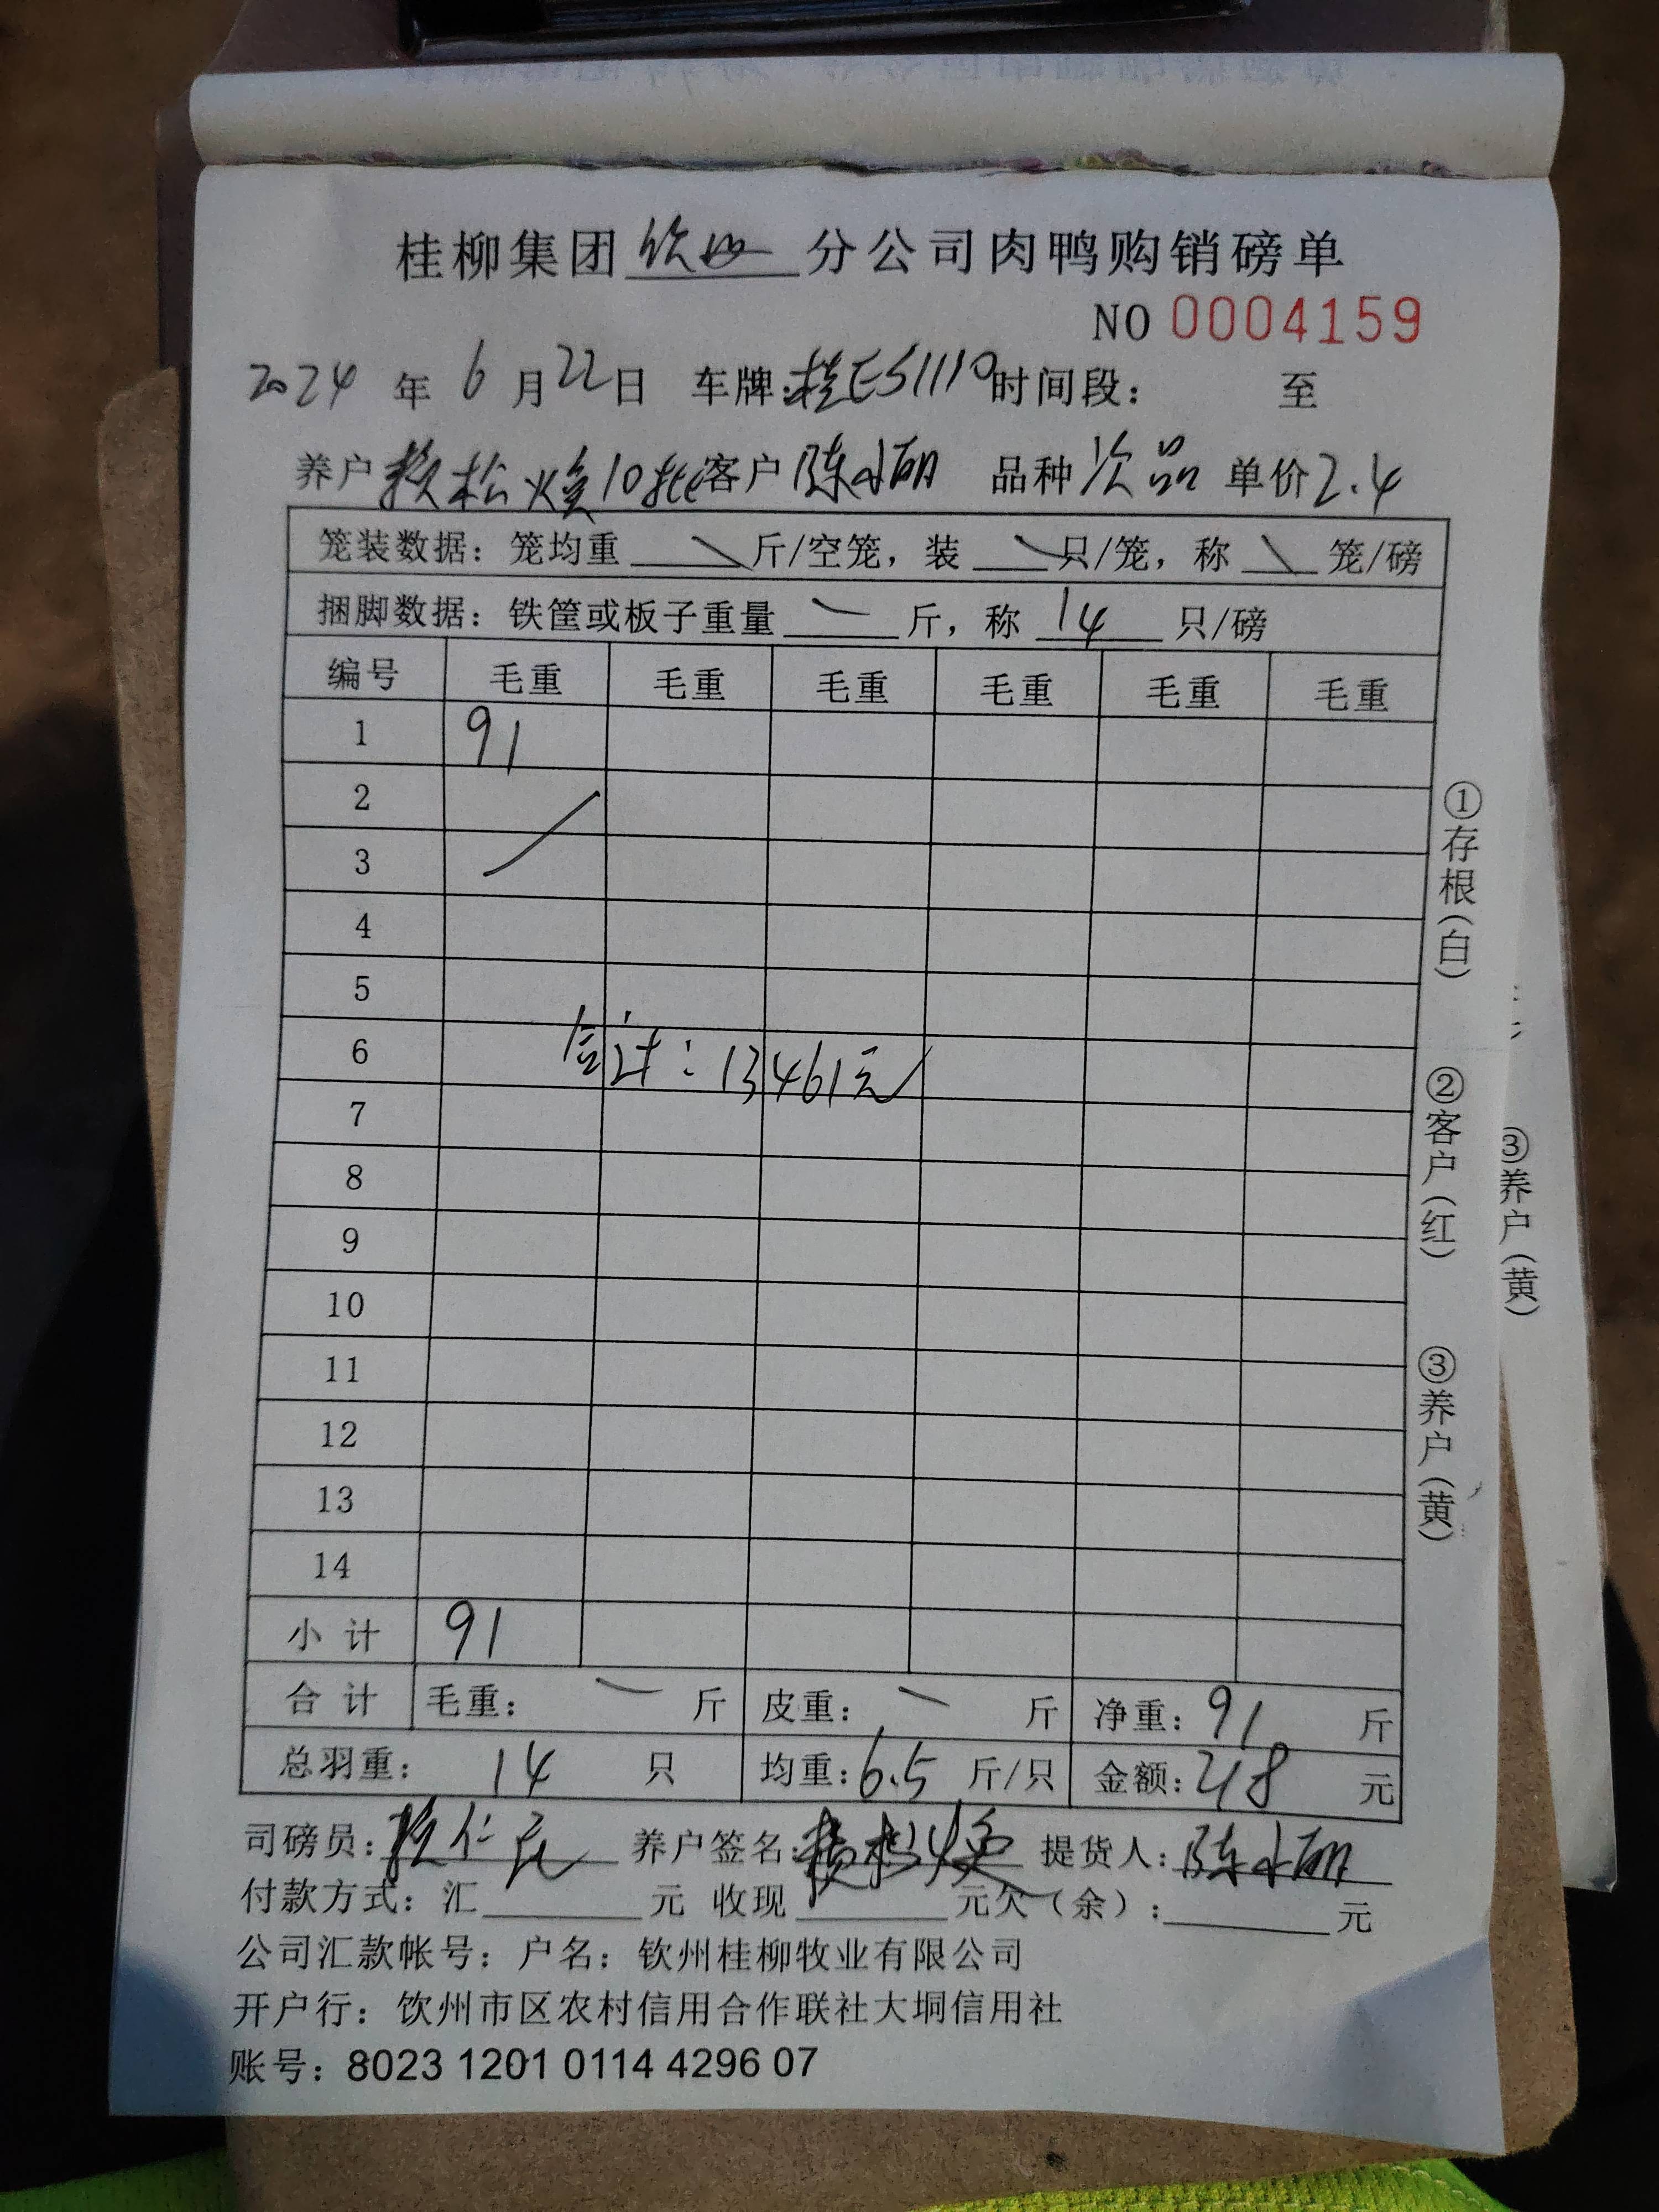 桂柳集团钦州分公司肉鸭购销磅单
NO 0004159
2024年6月22日 车牌:桂ES1110时间段: 至
养户 松焕10批客户陈小丽 品种次品 单价2.4
笼装数据:笼均重 斤/空笼,装 只/笼,称 笼/磅
捆脚数据:铁筐或板子重量 一 斤,称 14 只/磅
编号 毛重 毛重 毛重 毛重 毛重 毛重
1 91
2
3
4
5
6 合计:13461元
7
8
9
10
11
12
13
14
小计 91
合计 毛重: 一 斤 皮重: 一 斤 净重:91 斤
总羽重: 14 只 均重:6.5 斤/只 金额:218 元
司磅员: 养户签名: 松焕 提货人:陈小丽
付款方式:汇 元 收现 元欠(余): 元
公司汇款帐号:户名:钦州桂柳牧业有限公司
开户行:钦州市区农村信用合作联社大垌信用社
账号:8023 1201 0114 4296 07
①存根(白)
②客户(红)
③养户(黄)
③养户(黄)